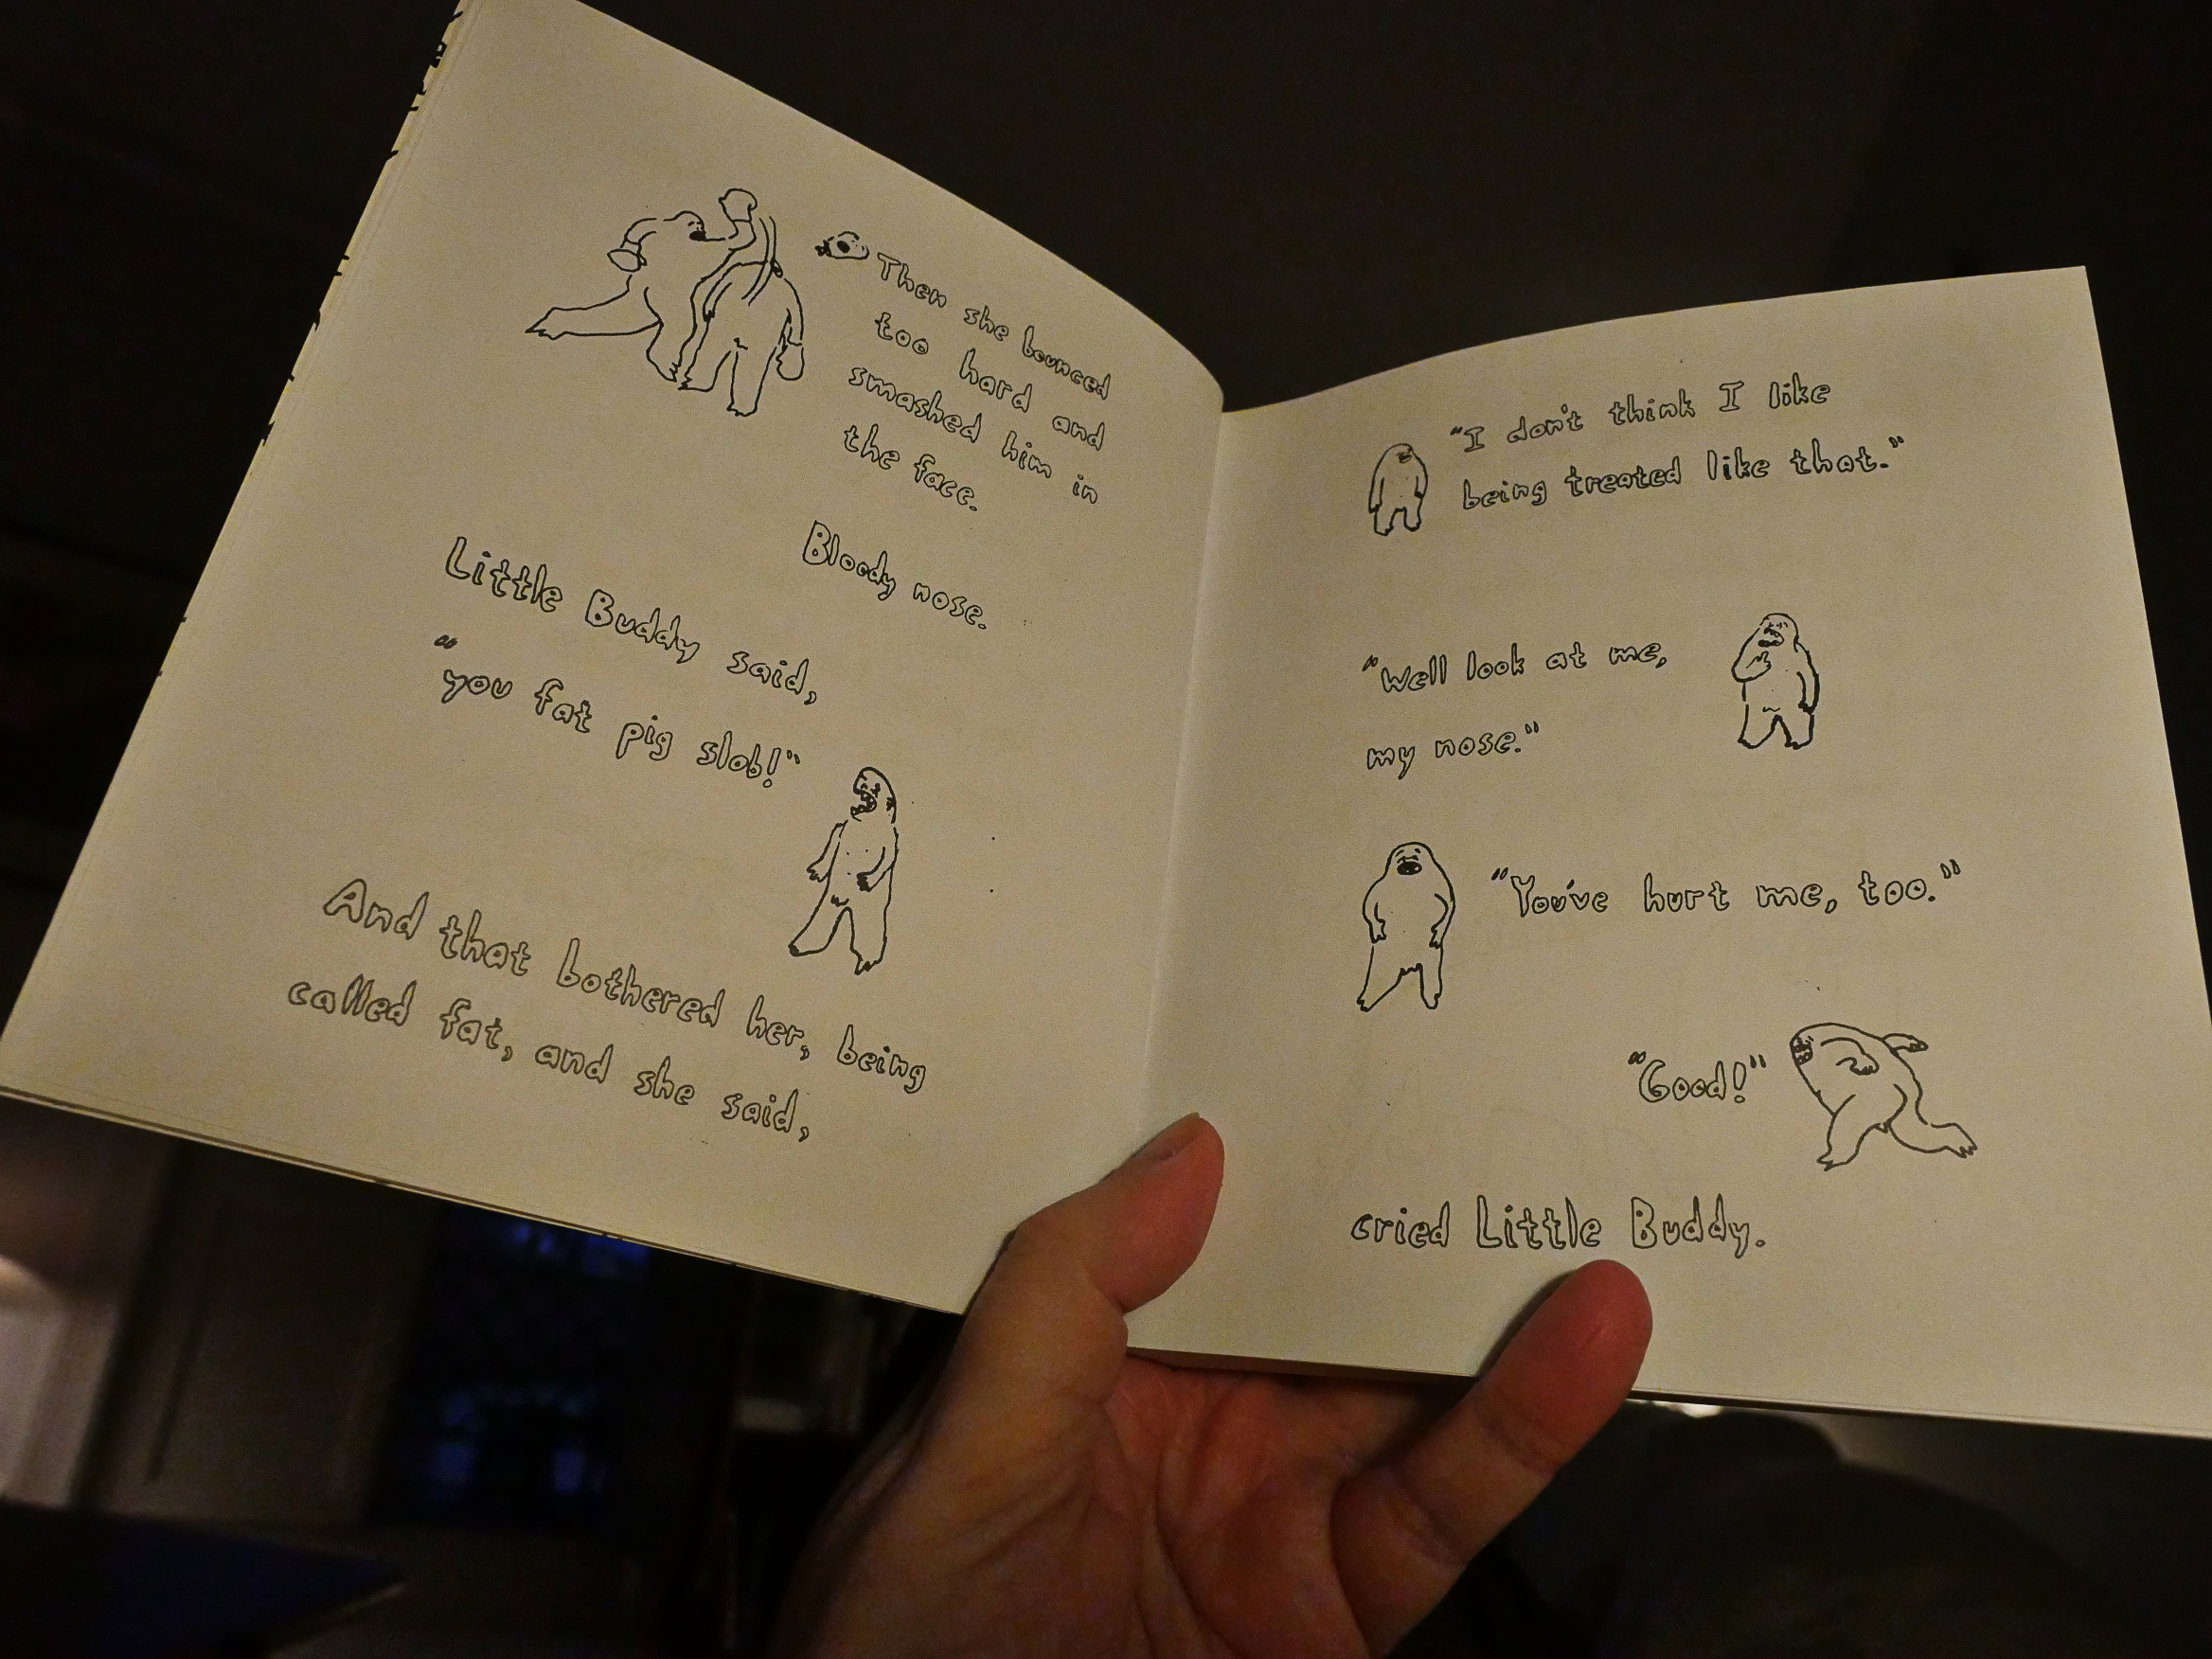 Then she bounced
too hard and
smashed him in
the face.
Bloody nose.
Little Buddy said,
"you fat pig slob!"
And that bothered her, being
called fat, and she said,
"I don't think I like
being treated like that."
"Well look at me,
my nose."
"You've hurt me, too."
"Good!"
cried Little Buddy.